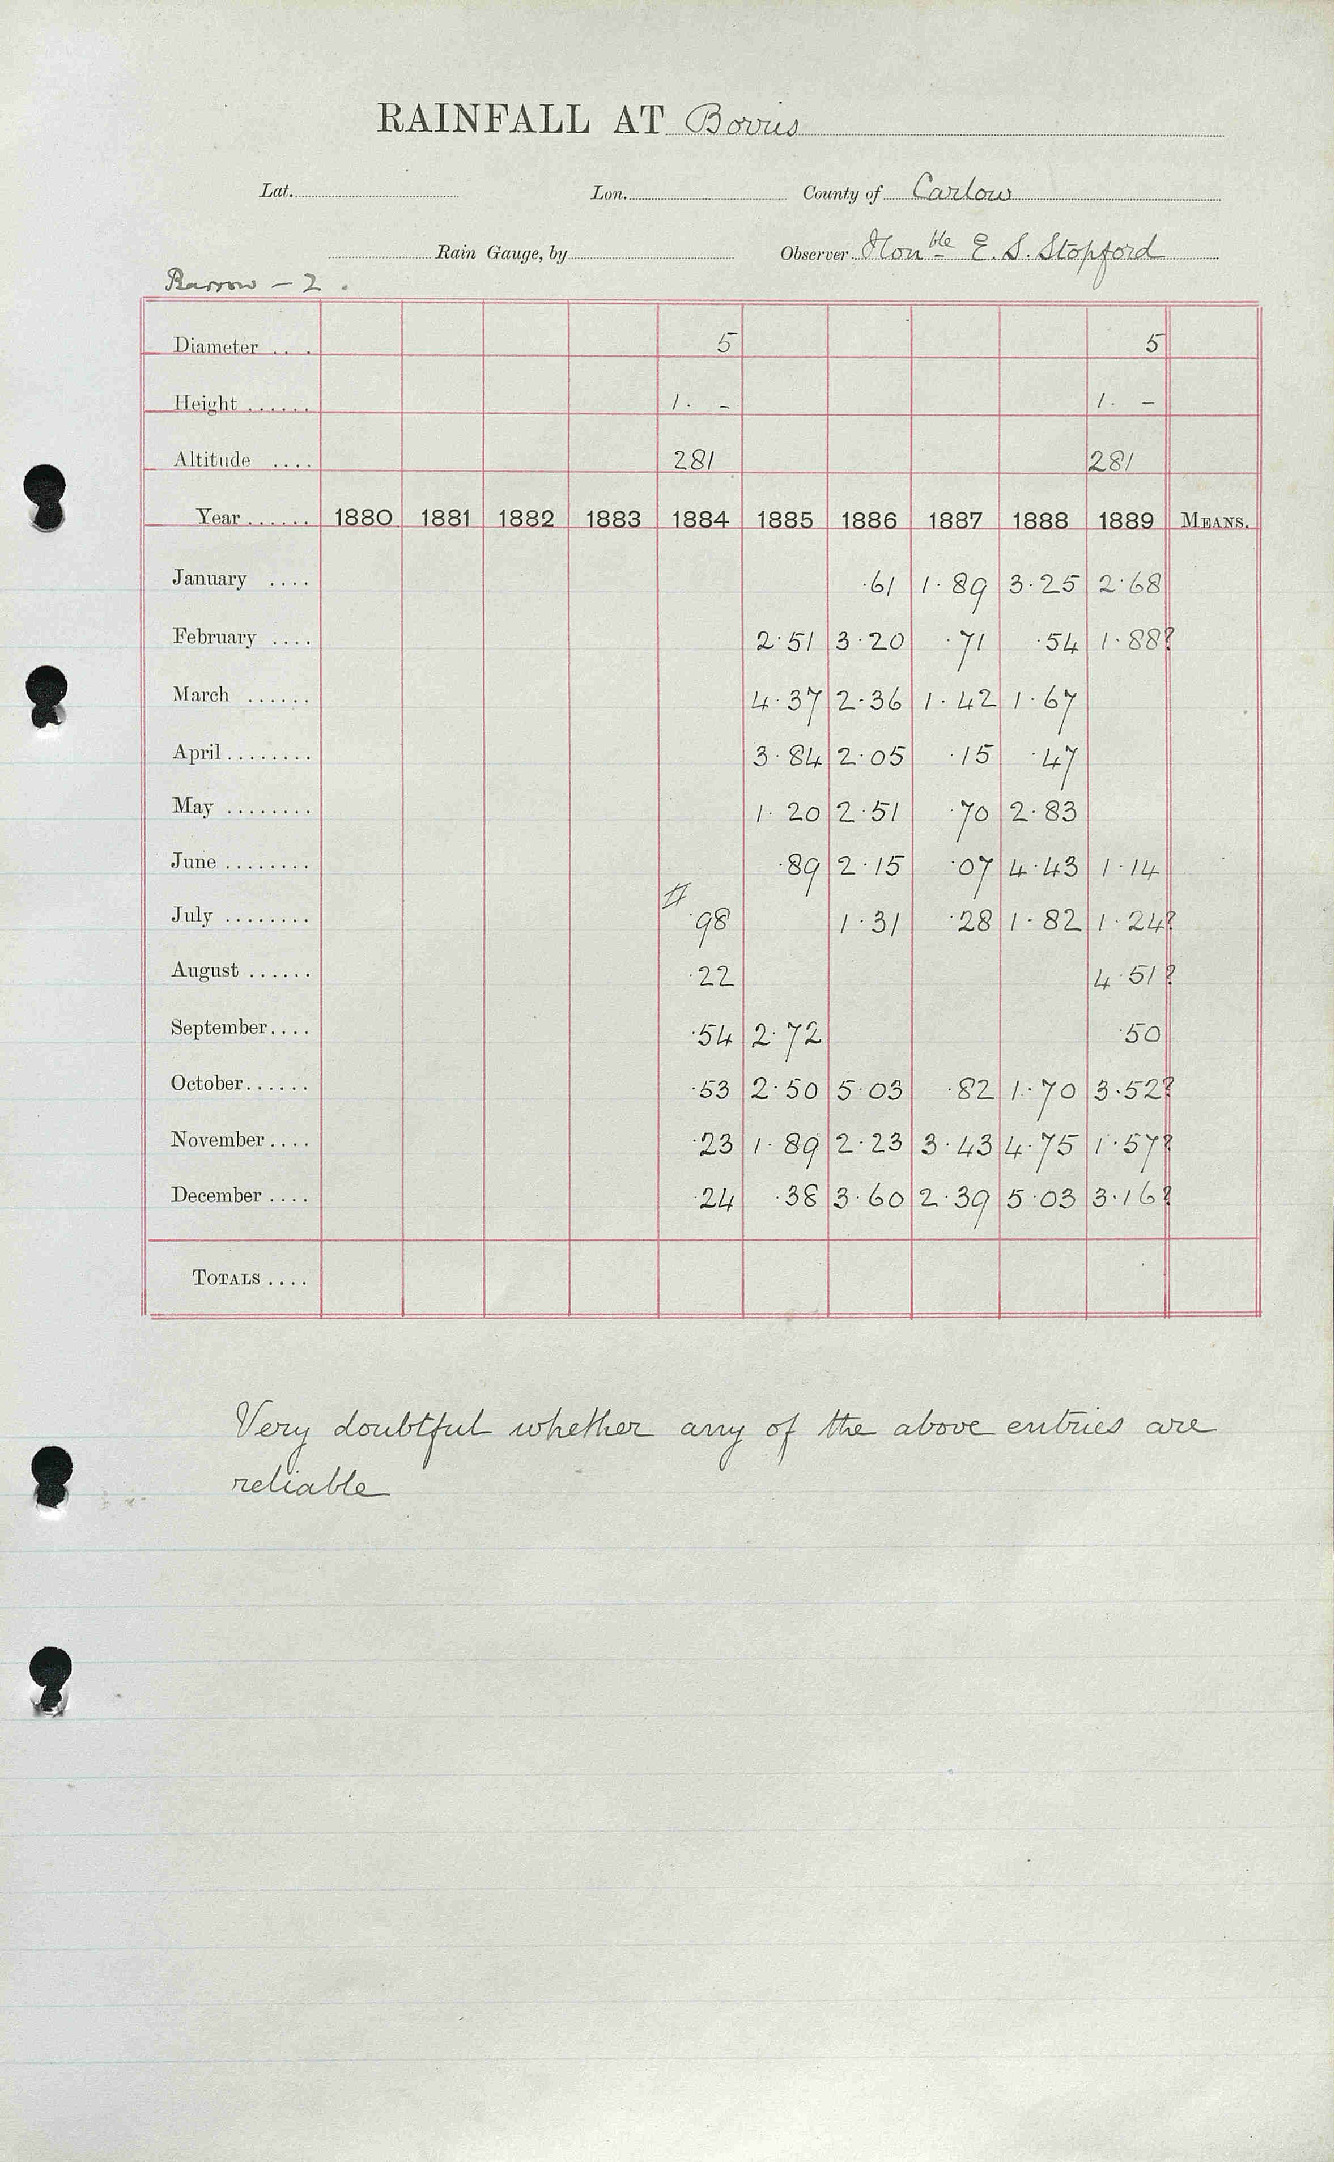 RAINFALL AT Borris
Lat. Lon. County of Carlow
Rain Gauge, by Observer Hon ble E. S. Stopford
Barrow - 2.
Diameter .. . 5 5
Height ...... 1. - 1. -
Altitude .... 281 281
Year ...... 1880 1881 1882 1883 1884 1885 1886 1887 1888 1889 MEANS.
January .... ·61 1·89 3·25 2·68
February .... 2·51 3·20 ·71 ·54 1·88?
March ...... 4·37 2·36 1·42 1·67
April ........ 3·84 2·05 ·15 ·47
May ........ 1·20 2·51 ·70 2·83
June ........ ·89 2·15 ·07 4·43 1·14
July ........ # ·98 1·31 ·28 1·82 1·24?
August ...... ·22 4·51?
September .... ·54 2·72 ·50
October ...... ·53 2·50 5·03 ·82 1·70 3·52?
November .... ·23 1·89 2·23 3·43 4·75 1·57?
December .... ·24 ·38 3·60 2·39 5·03 3·16?
TOTALS ....
Very doubtful whether any of the above entries are
reliable